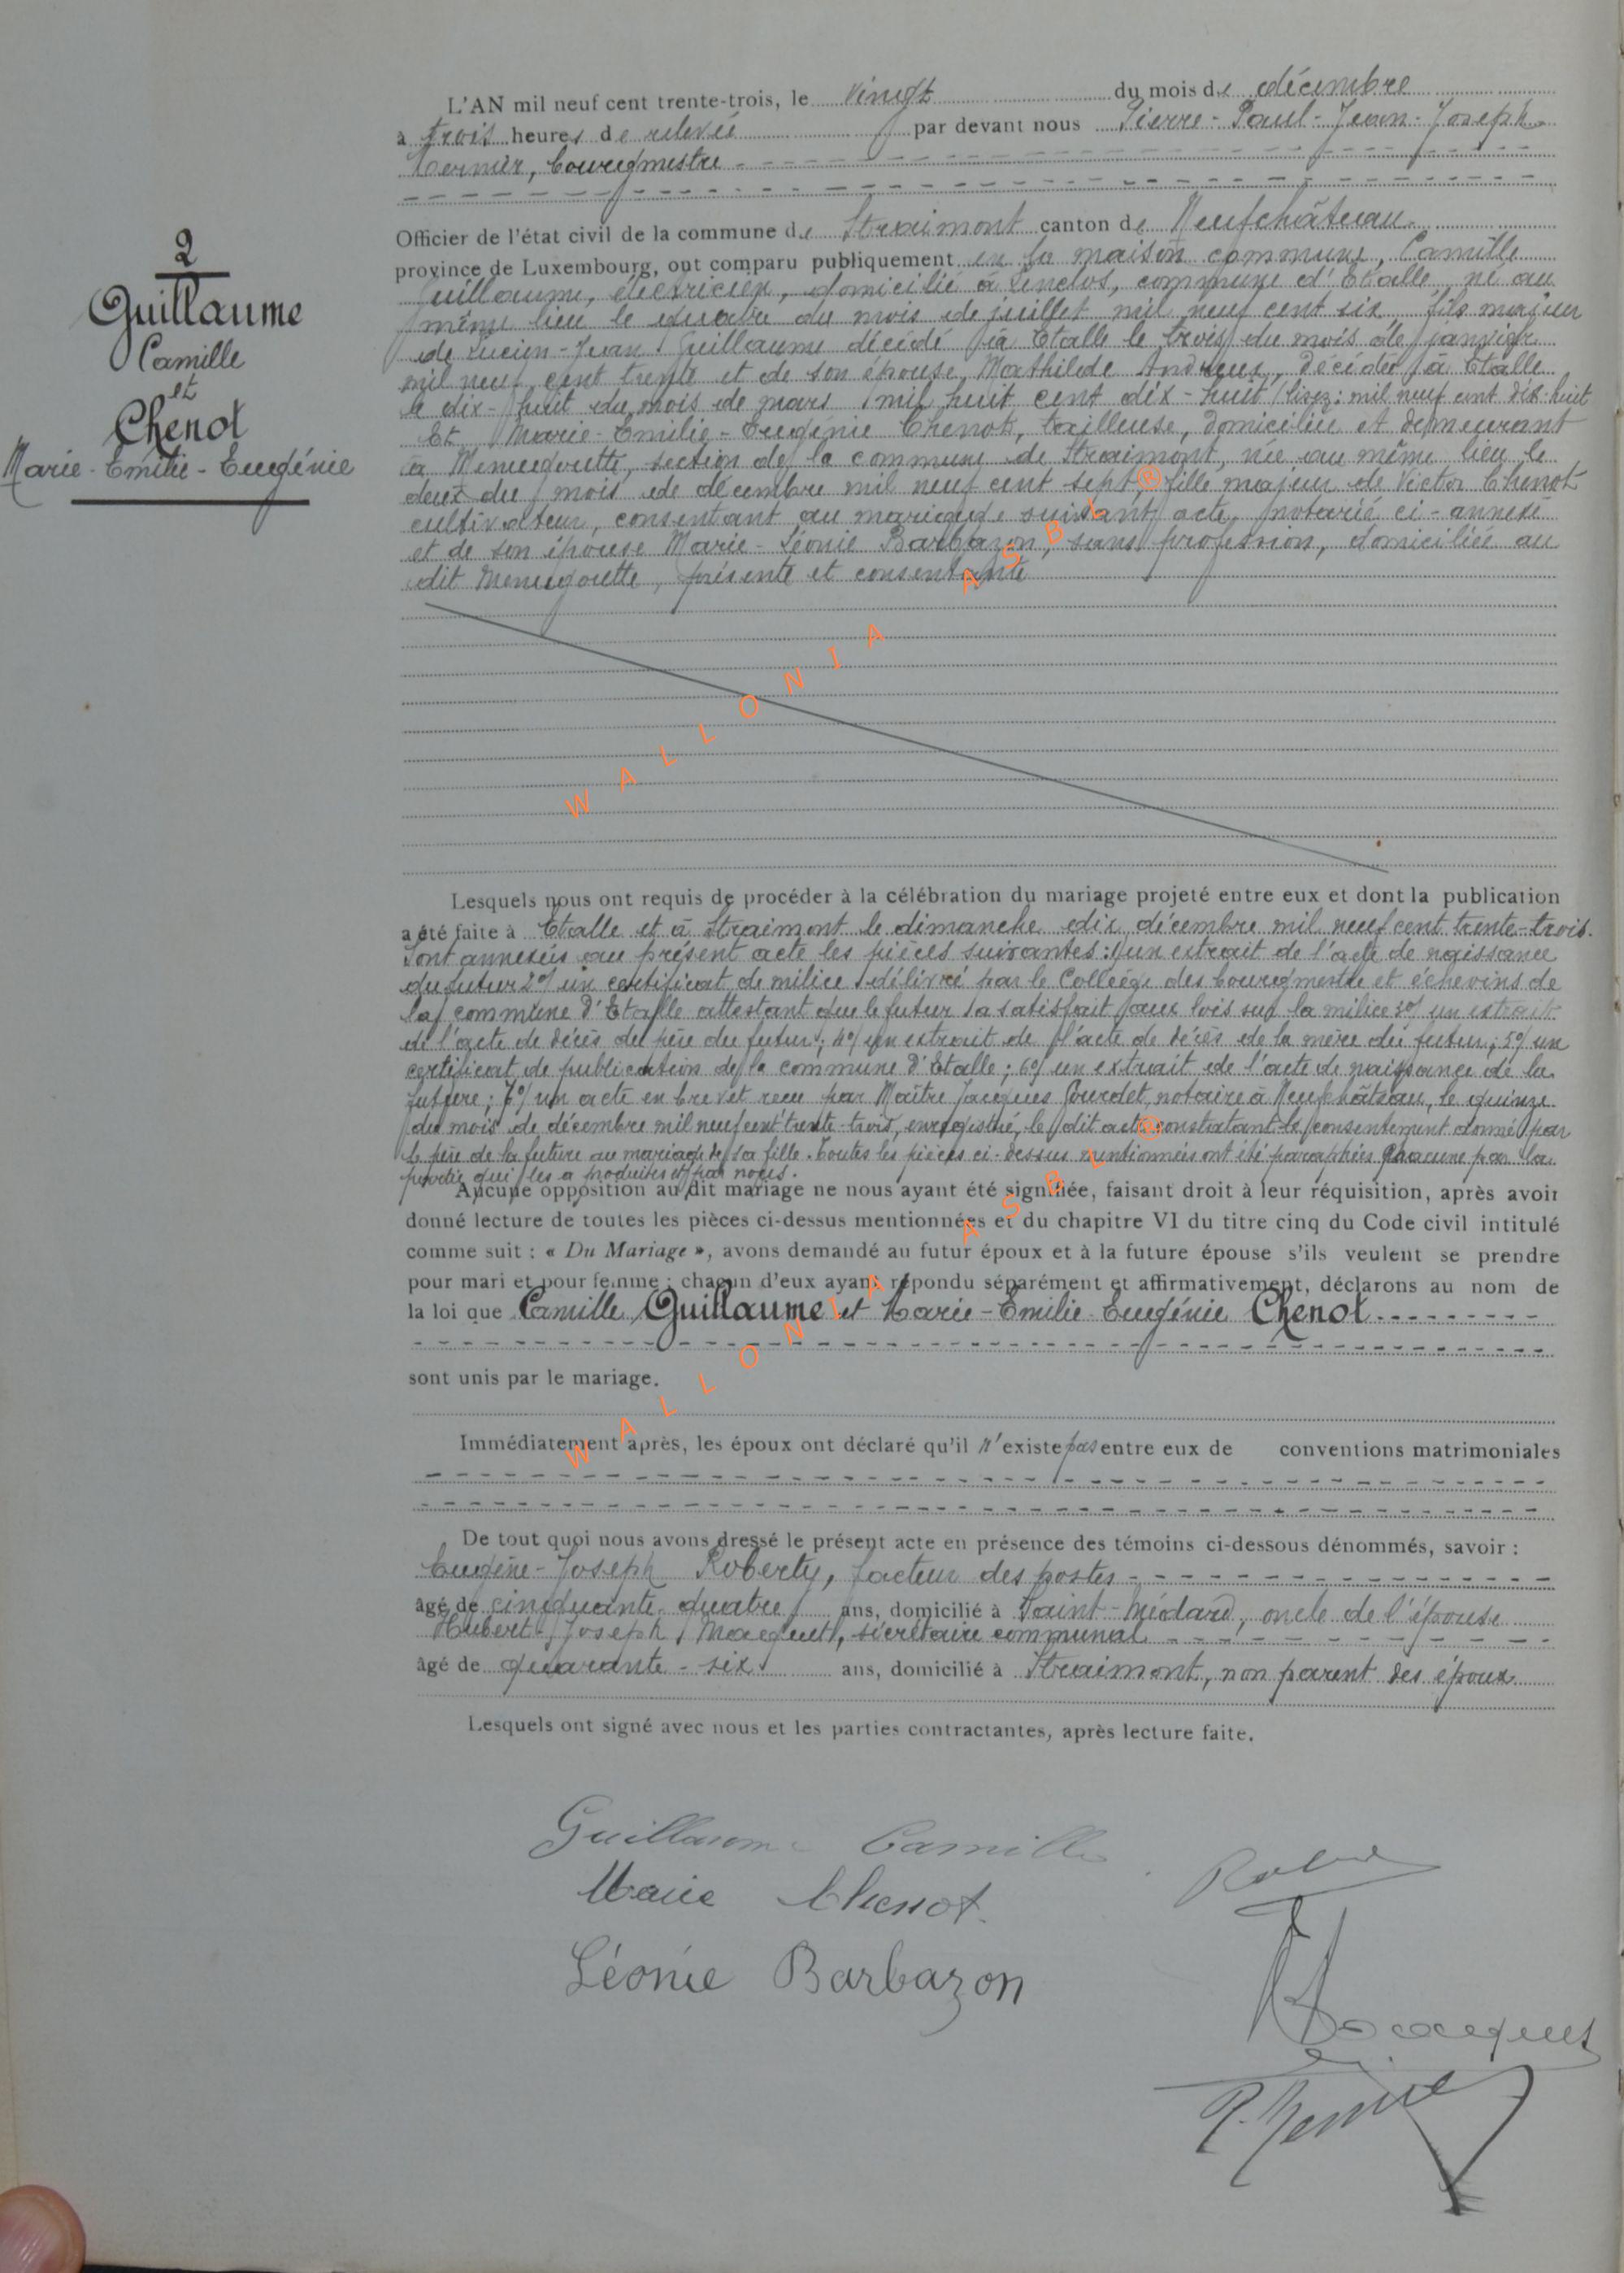 2
Guillaume
Camille
et
Chenot
Marie-Emilie-Eugénie
L'AN mil neuf cent trente-trois, le vingt du mois de décembre
à trois heures de relevée par devant nous Pierre-Paul-Jean-Joseph
bourgmestre
Officier de l'état civil de la commune de Straimont canton de Neufchâteau.
province de Luxembourg, ont comparu publiquement en la maison commune, Camille
Guillaume, électricien, domicilié à Lenclos, commune d'Etalle, né au
même lieu le quatre du mois de juillet mil neuf cent six fils majeur
de Lucien-Jean Guillaume décédé à Etalle le trois du mois de janvier
mil neuf cent trente et de son épouse, Mathilde décédée à Etalle
le dix-huit du mois de mars mil huit cent dix-huit (lisez: mil neuf cent dix-huit
Et Marie-Emilie-Eugénie Chenot, tailleuse, domiciliée et demeurant
à Menugoutte, section de la commune de Straimont, née au même lieu le
deux du mois de décembre mil neuf cent sept, fille majeur de Victor Chenot
cultivateur, consentant au mariage suivant acte notarié ci-annexé
et de son épouse Marie-Léonie Barbazon, sans profession, domiciliée au
dit Menugoutte, présente et consentante
Lesquels nous ont requis de procéder à la célébration du mariage projeté entre eux et dont la publication
a été faite à Etalle et à Straimont le dimanche dix décembre mil neuf cent trente-trois.
Sont annexées au présent acte les pièces suivantes: 1°/ un extrait de l'acte de naissance
du futur 2°/ un certificat de milice délivré par le Collège des bourgmestre et échevins de
la commune d'Etalle attestant que le futur a satisfait aux lois sur la milice 3°/ un extrait
de l'acte de décès du père du futur; 4°/ un extrait de l'acte de décès de la mère du futur; 5°/ un
certificat de publication de la commune d'Etalle; 6°/ un extrait de l'acte de naissance de la
future; 7°/ un acte en brevet reçu par Maître Jacques Gourdet, notaire à Neufchâteau, le quinze
du mois de décembre mil neuf cent trente-trois, enregistré, le dit acte constatant le consentement donné par
le père de la future au mariage de sa fille. Toutes les pièces ci-dessus mentionnées ont été paraphées chacune par la
partie qui les a produites et par nous.
Aucune opposition au dit mariage ne nous ayant été signifiée, faisant droit à leur réquisition, après avoir
donné lecture de toutes les pièces ci-dessus mentionnées et du chapitre VI du titre cinq du Code civil intitulé
comme suit : « Du Mariage », avons demandé au futur époux et à la future épouse s'ils veulent se prendre
pour mari et pour femme ; chacun d'eux ayant répondu séparément et affirmativement, déclarons au nom de
la loi que Camille Guillaume et Marie-Emilie-Eugénie Chenot
sont unis par le mariage.
Immédiatement après, les époux ont déclaré qu'il n'existe pas entre eux de conventions matrimoniales
De tout quoi nous avons dressé le présent acte en présence des témoins ci-dessous dénommés, savoir :
Eugène-Joseph Roberty, facteur des postes
âgé de cinquante-quatre ans, domicilié à Saint-Médard, oncle de l'épouse
Hubert-Joseph Macquet, secrétaire communal
âgé de quarante-six ans, domicilié à Straimont, non parent des époux
Lesquels ont signé avec nous et les parties contractantes, après lecture faite.
Guillaume Camille
Marie Chenot
Léonie Barbazon
WALLONIA ASBL ®
WALLONIA ASBL ®